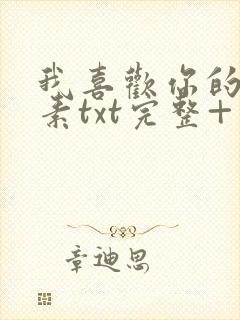 我喜歡你的
素txt完整+
章迪思